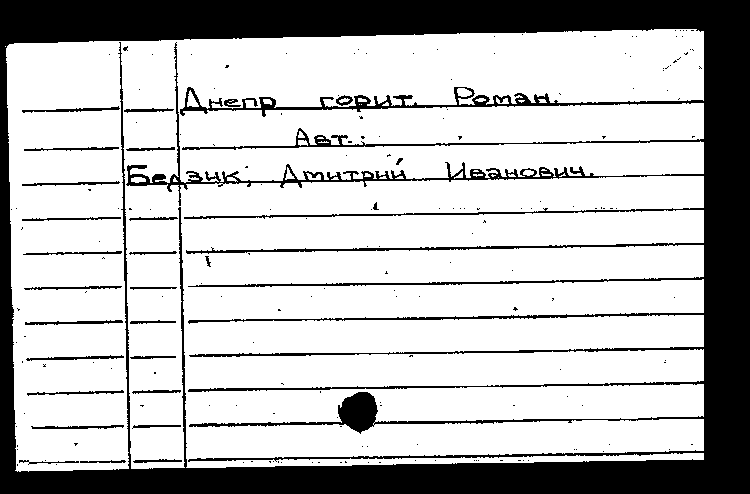 Днепр горит. Роман.
Авт.:
Бедзик, Дмитрий Иванович.